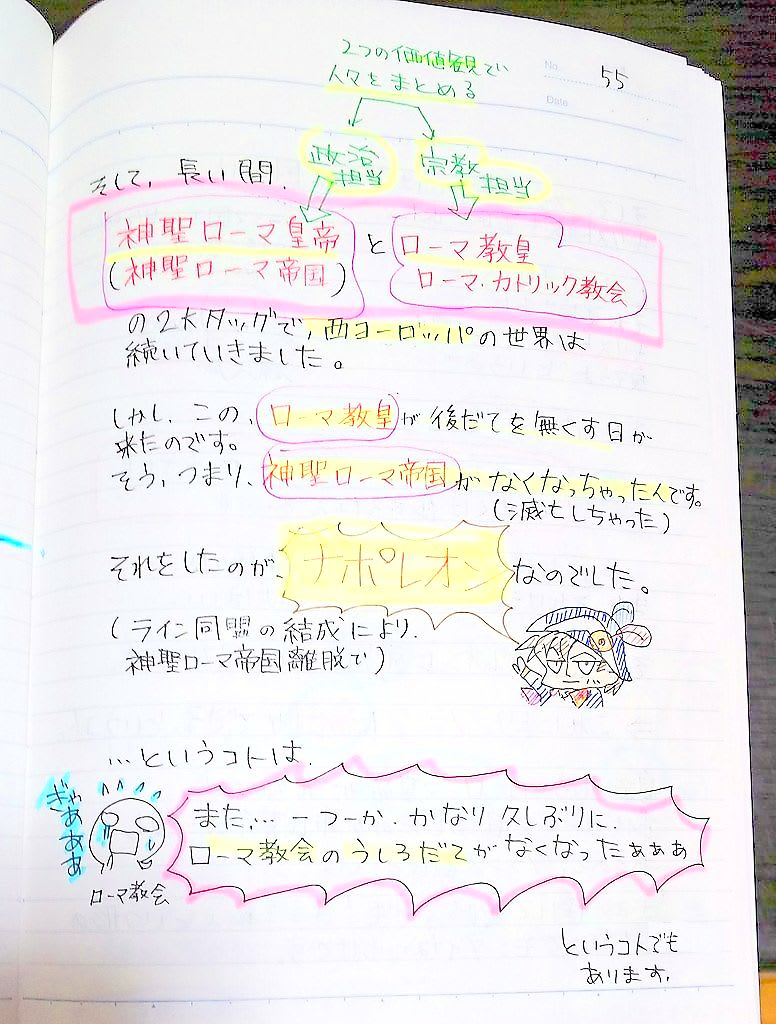 No.
55
Date
2つの価値観で
人々をまとめる
政治
担当
宗教
担当
そして、長い間、
神聖ローマ皇帝
(神聖ローマ帝国)
と
ローマ教皇
ローマ・カトリック教会
の2大タッグで、西ヨーロッパの世界は
続いていきました。
しかし、この、ローマ教皇が後だてを無くす日が
来たのです。
そう、つまり、神聖ローマ帝国がなくなっちゃったんです。
(滅亡しちゃった)
それをしたのが、ナポレオンなのでした。
(ライン同盟の結成により、
神聖ローマ帝国離脱で)
…というコトは、
ぎゃあああ
ローマ教会
また、…一つーか、かなり久しぶりに、
ローマ教会のうしろだてがなくなったぁぁぁ
というコトでも
あります。